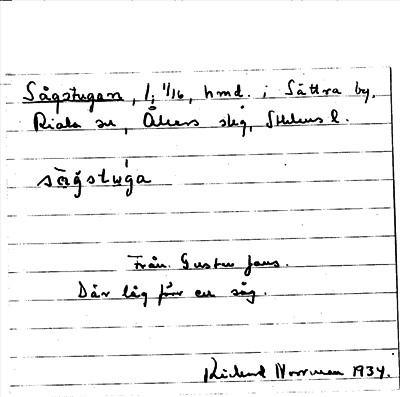 Sågstugan, l, 1/16, hmd. i Sättra by,
Riala sn, Åkers skg, Sthlms l.
sågstuga
Från Gustav Jans.
Där låg förr en såg.
Rickard Norrman 1934.